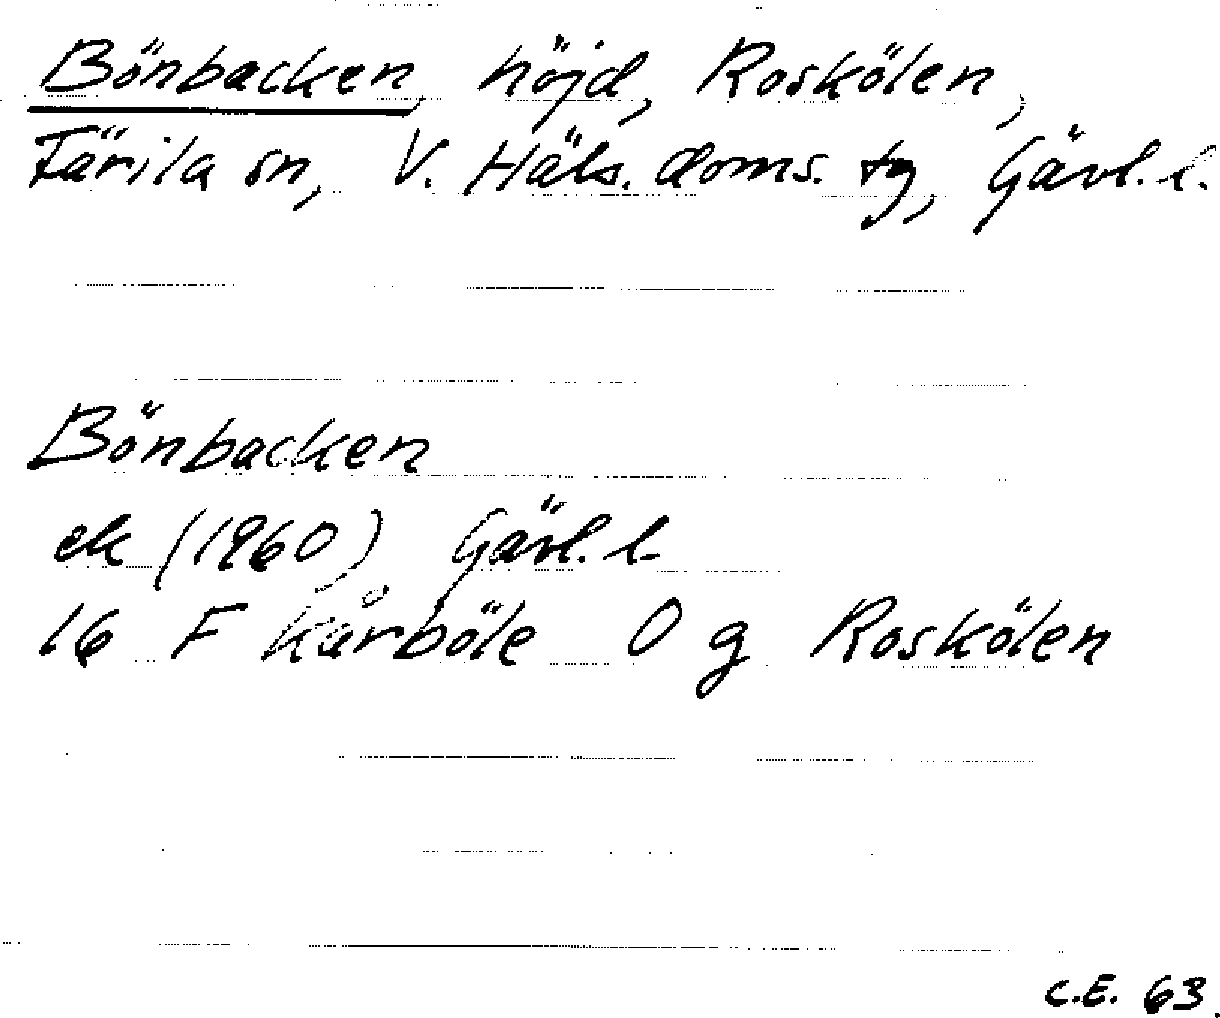 Bönbacken, höjd, Roskölen,
Färila sn, V. Häls. doms. tg, Gävl. l.
Bönbacken
ek (1960) Gävl. l.
16 F Kårböle 0 g Roskölen
C.E. 63.